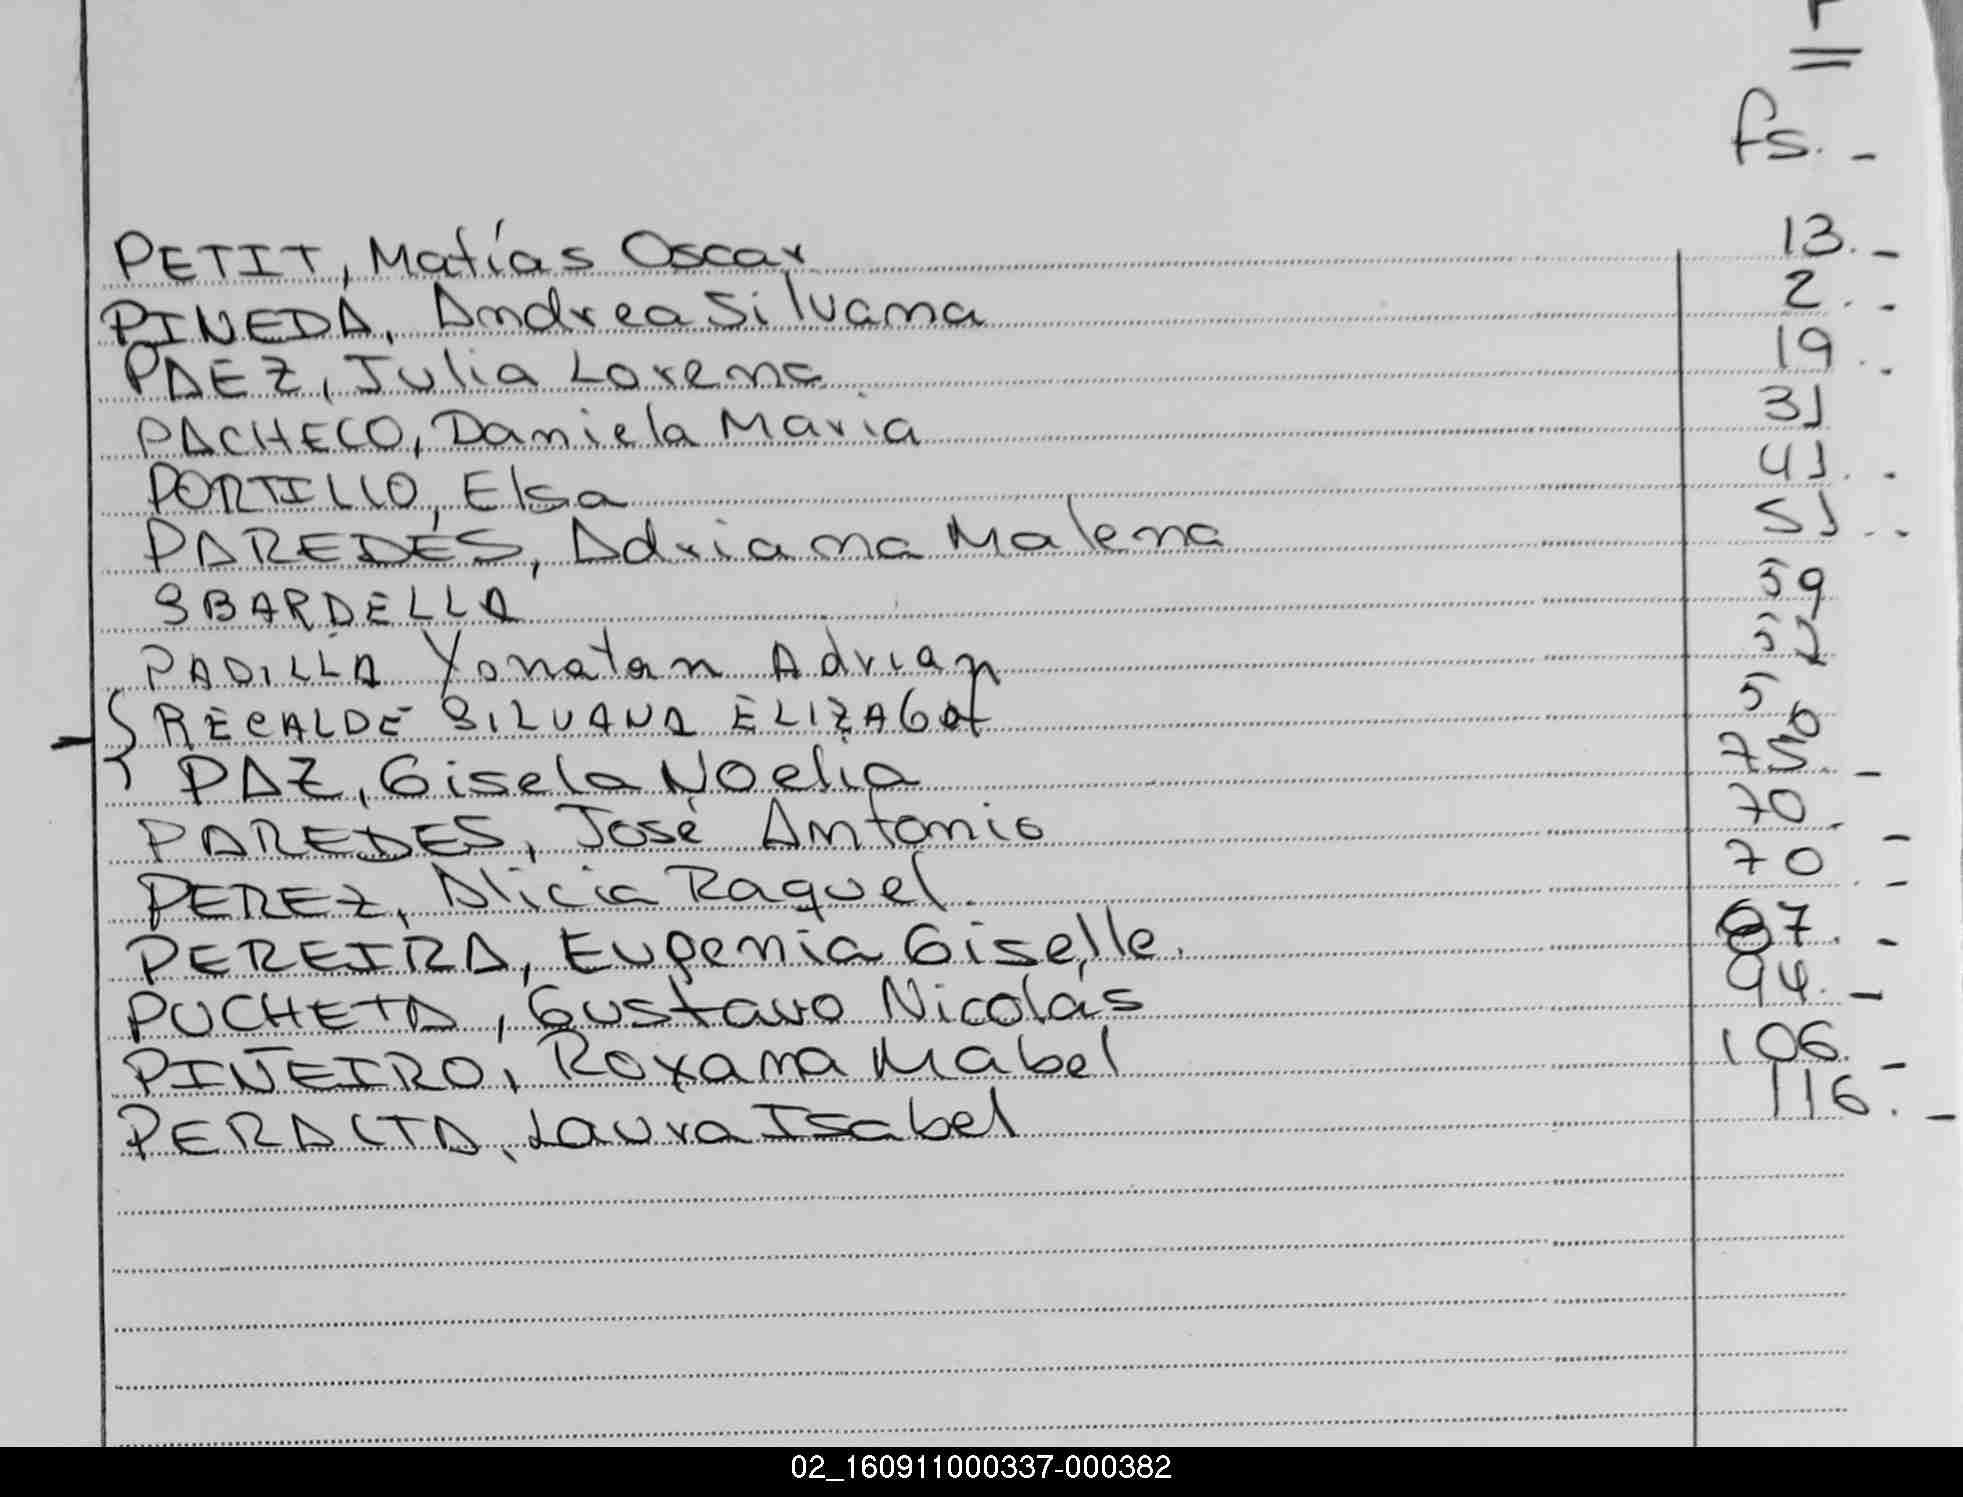 fs. -
PETIT, Matías Oscar 13. -
PINEDA, Andrea Silvana 2. -
PAEZ, Julia Lorena 19. -
PACHECO, Daniela Maria 31
PORTILLO, Elsa 41. -
PAREDES, Adriana Malena 51. -
SBARDELLA 59
PADILLA Yonatan Adrian 52
RECALDE SILVANA ELIZABET 56
PAZ, Gisela Noelia 75. -
PAREDES, José Antonio 70. -
PEREZ, Alicia Raquel. 70. -
PEREIRA, Eugenia Giselle. 87. -
PUCHETA, Gustavo Nicolás 94. -
PIÑEIRO, Roxana Mabel 106. -
PERALTA, Laura Isabel 116. -
02_160911000337-000382